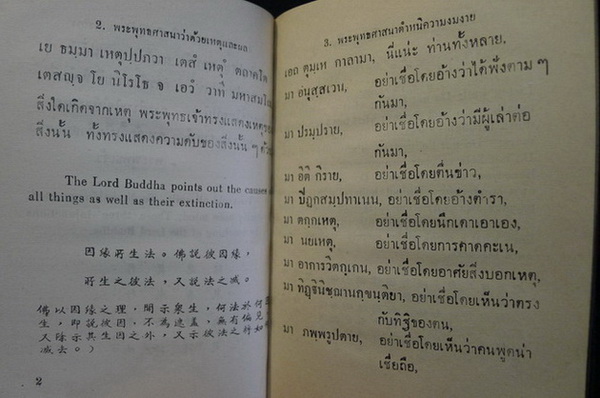 2. พระพุทธศาสนาว่าด้วยเหตุและผล
เย ธมฺมา เหตุปฺปภวา เตสํ เหตุํ ตถาคโต
เตสญฺจ โย นิโรโธ จ เอวํ วาที มหาสมโณ
สิ่งใดเกิดจากเหตุ พระพุทธเจ้าทรงแสดงเหตุ
สิ่งนั้น ทั้งทรงแสดงความดับของสิ่งนั้น ๆ ด้วย
The Lord Buddha points out the causes
all things as well as their extinction.
因緣所生法。佛說彼因緣,
所生之彼法,又說法之滅。
佛以因緣之理,開示眾生,何法於何
生,即說彼因,不為遮蓋,無有偏見
又除示其生因之外,又示彼法之所如
滅去。)
2
3. พระพุทธศาสนาตำหนิความงมงาย
เอถ ตุมฺเห กาลามา, นี่แน่ะ ท่านทั้งหลาย,
มา อนุสฺสเวน, อย่าเชื่อโดยอ้างว่าได้ฟังตาม ๆ
กันมา,
มา ปรมฺปราย, อย่าเชื่อโดยอ้างว่ามีผู้เล่าต่อ
กันมา,
มา อิติ กิราย, อย่าเชื่อโดยตื่นข่าว,
มา ปิฎกสมฺปทาเนน, อย่าเชื่อโดยอ้างตำรา,
มา ตกฺกเหตุ, อย่าเชื่อโดยนึกเดาเอาเอง,
มา นยเหตุ, อย่าเชื่อโดยการคาดคะเน,
มา อาการวิตกฺเกน, อย่าเชื่อโดยอาศัยสิ่งบอกเหตุ,
มา ทิฏฺฐินิชฺฌานกฺขนฺติยา, อย่าเชื่อโดยเห็นว่าตรง
กับทิฐิของตน,
มา ภพฺพรูปตาย, อย่าเชื่อโดยเห็นว่าคนพูดน่า
เชื่อถือ,